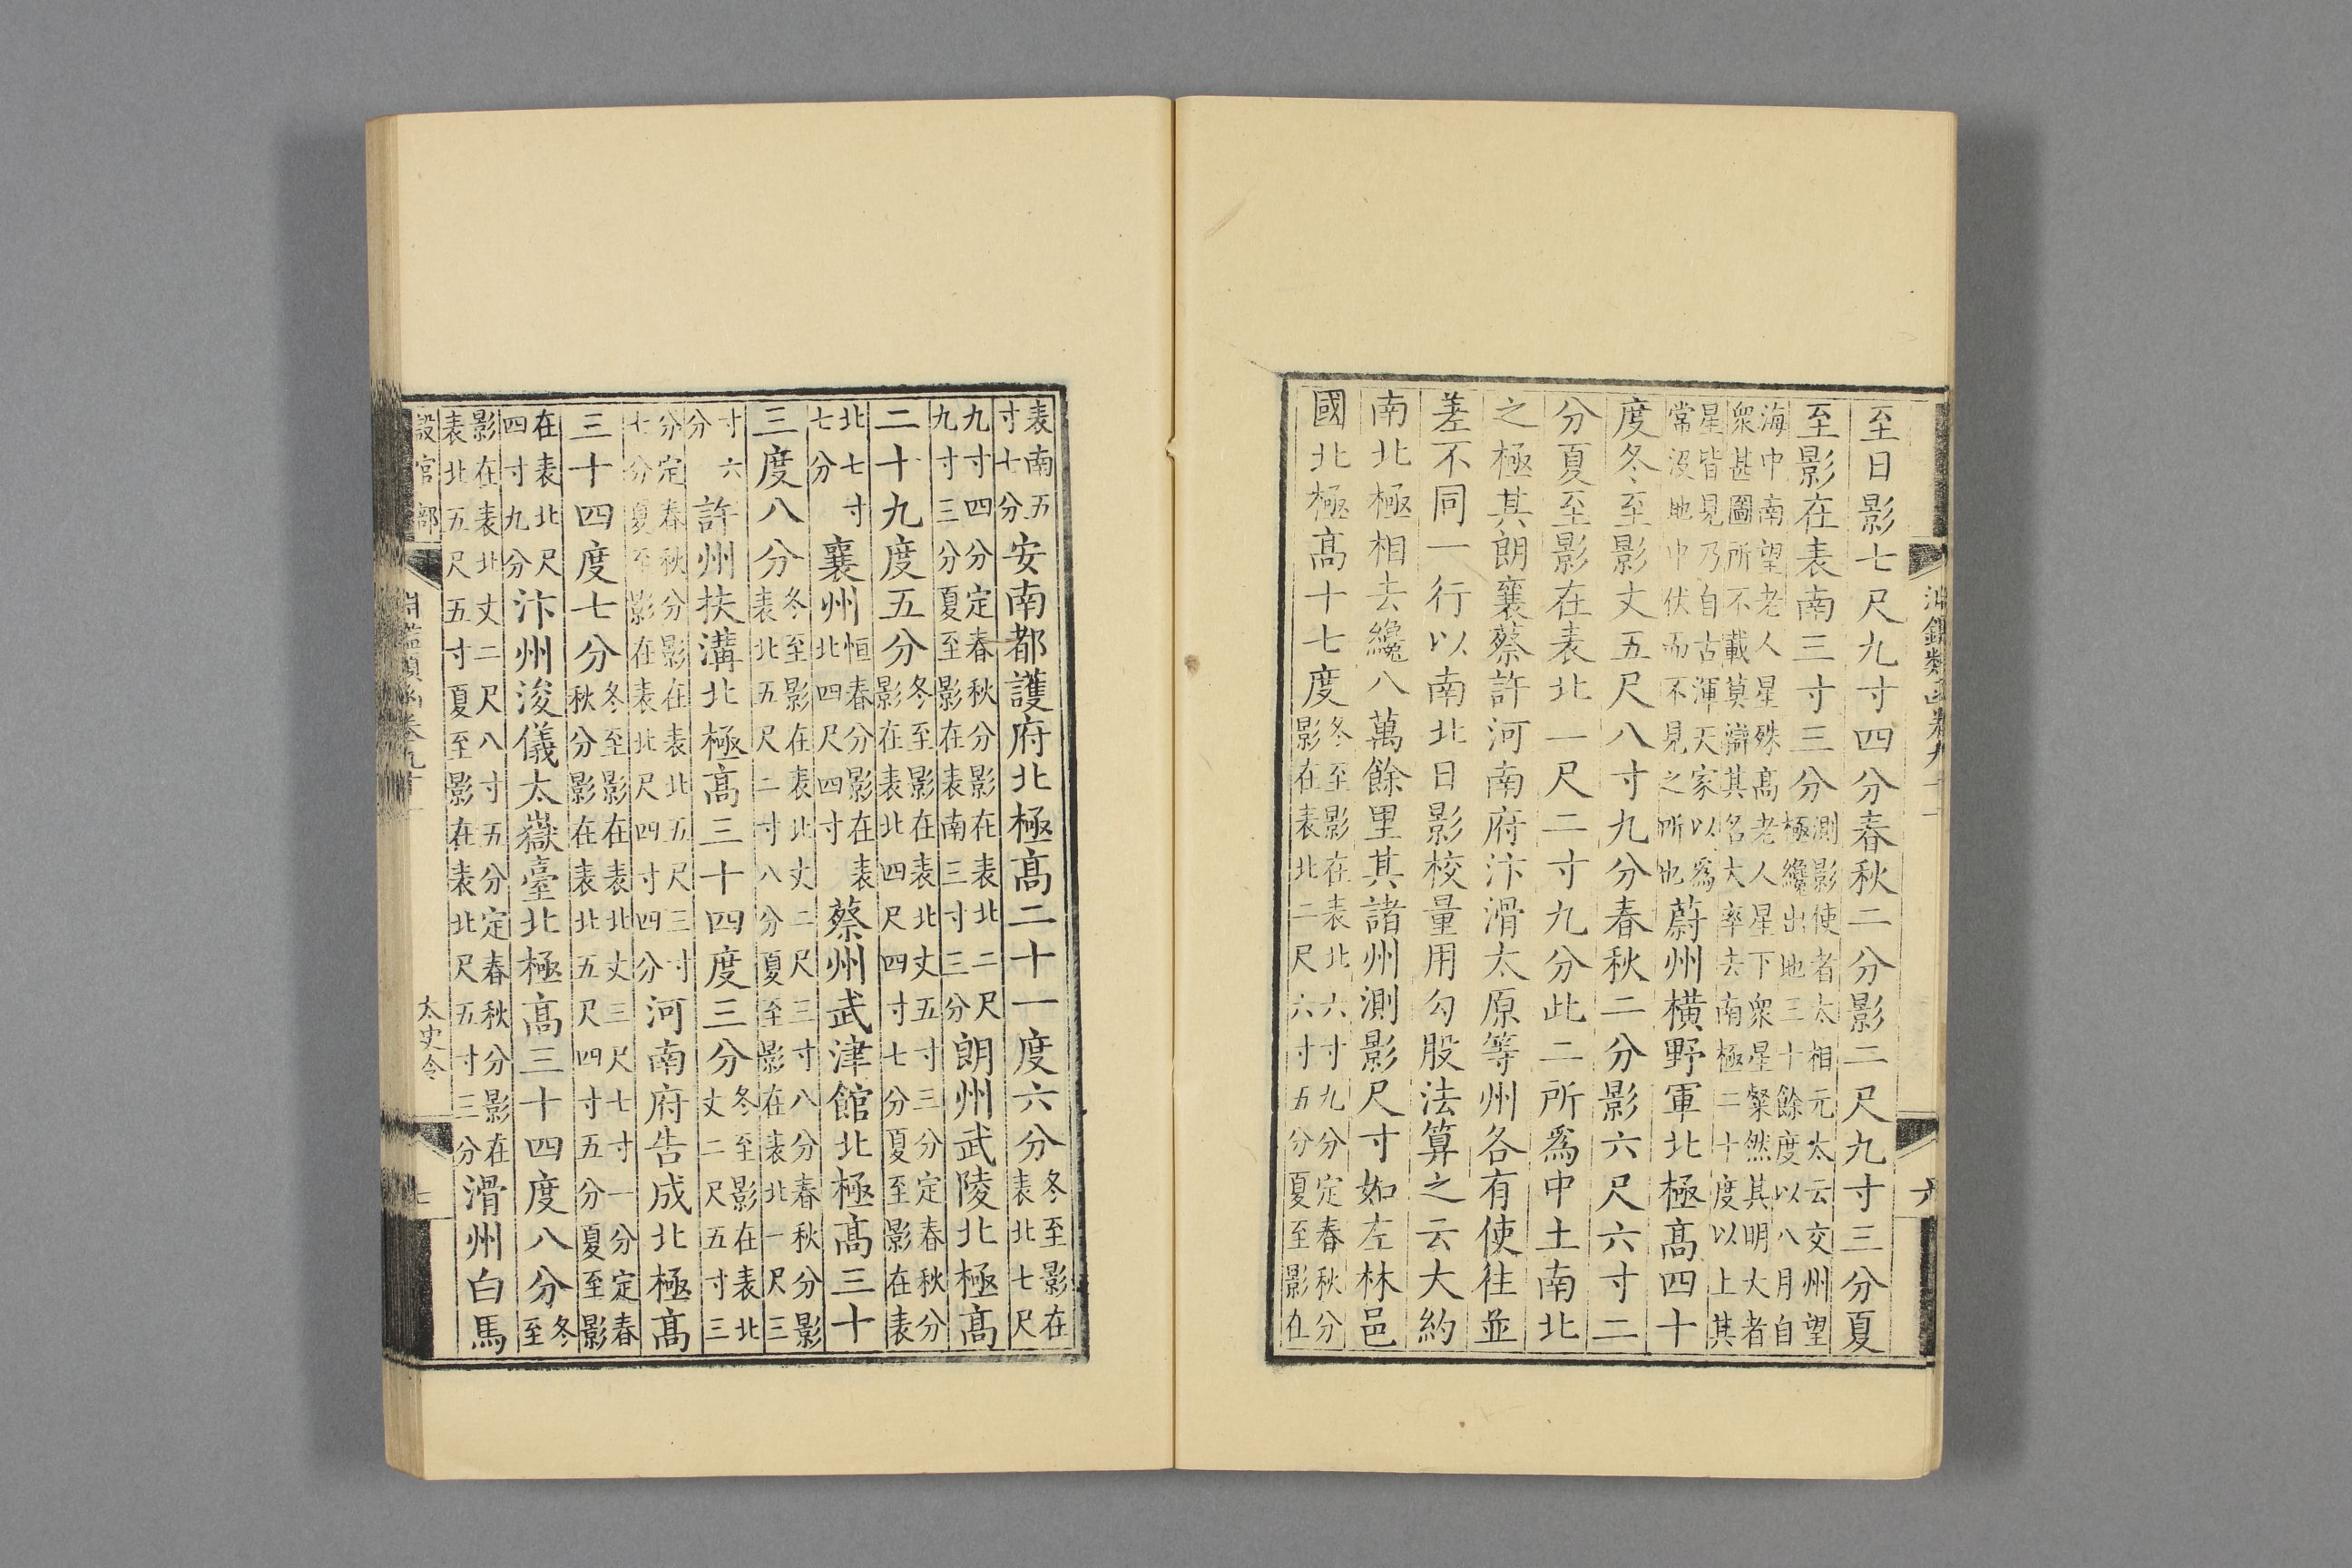 淵鑑類函卷九十一
至日影七尺九寸四分春秋二分影二尺九寸三分夏
至影在表南三寸三分測影使者太相元太云交州望極纔出地三十餘度以八月自
海中南望老人星殊高老人星下衆星粲然其明大者衆甚圖所不載莫辯其名大率去南極二十度以上其
星皆見乃自古渾天家以爲常沒地中伏而不見之所也蔚州橫野軍北極高四十
度冬至影丈五尺八寸九分春秋二分影六尺六寸二
分夏至影在表北一尺二寸九分此二所爲中土南北
之極其朗襄蔡許河南府汴滑太原等州各有使往並
差不同一行以南北日影校量用勾股法算之云大約
南北極相去纔八萬餘里其諸州測影尺寸如左林邑
國北極高十七度冬至影在表北六寸九分定春秋分影在表北二尺六寸五分夏至影在
表南五寸七分安南都護府北極高二十一度六分冬至影在表北七尺
九寸四分定春秋分影在表北二尺九寸三分夏至影在表南三寸三分朗州武陵北極高
二十九度五分冬至影在表北丈五寸三分定春秋分影在表北四尺四寸七分夏至影在表
北七寸七分襄州恒春分影在表北四尺四寸蔡州武津館北極高三十
三度八分冬至影在表北丈二尺三寸八分春秋分影表北五尺二寸八分夏至影在表北一尺三
寸六分許州扶溝北極高三十四度三分冬至影在表北丈二尺五寸三
分定春秋分影在表北五尺三寸七分夏至影在表北尺四寸四分河南府告成北極高
三十四度七分冬至影在表北丈三尺七寸一分定春秋分影在表北五尺四寸五分夏至影
在表北尺四寸九分汴州浚儀太嶽臺北極高三十四度八分冬至
影在表北丈二尺八寸五分定春秋分影在表北五尺五寸夏至影在表北尺五寸三分滑州白馬
設官部 淵鑑類函卷九十一 太史令